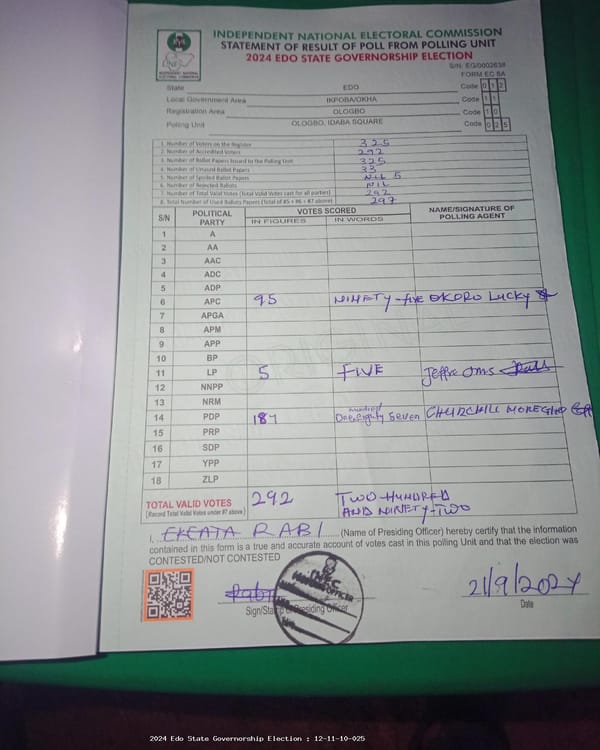 INDEPENDENT NATIONAL ELECTORAL COMMISSION
STATEMENT OF RESULT OF POLL FROM POLLING UNIT
2024 EDO STATE GOVERNORSHIP ELECTION
S/N: EG/0002638
FORM EC 8A
State EDO Code 0 1 2
Local Government Area IKPOBA/OKHA Code 1 1
Registration Area OLOGBO Code 1 0
Polling Unit OLOGBO, IDABA SQUARE Code 0 2 5
1. Number of Voters on the Register 325
2. Number of Accredited Voters 292
3. Number of Ballot Papers Issued to the Polling Unit 325
4. Number of Unused Ballot Papers 33
5. Number of Spoiled Ballot Papers NIL 5
6. Number of Rejected Ballots NIL
7. Number of Total Valid Votes (Total Valid Votes cast for all parties) 292
8. Total Number of Used Ballots Papers (Total of #5 + #6 + #7 above) 297
S/N POLITICAL PARTY VOTES SCORED NAME/SIGNATURE OF POLLING AGENT
IN FIGURES IN WORDS
1 A
2 AA
3 AAC
4 ADC
5 ADP
6 APC 95 NINETY-five OKORO LUCKY
7 APGA
8 APM
9 APP
10 BP
11 LP 5 FIVE Jeffre oms
12 NNPP
13 NRM
14 PDP 187 One hundred Eighty Seven CHURCHILL
15 PRP
16 SDP
17 YPP
18 ZLP
TOTAL VALID VOTES 292 TWO HUNDRED AND NINETY-TWO
(Record Total Valid Votes under #7 above)
I, EKEATA RABI (Name of Presiding Officer) hereby certify that the information
contained in this form is a true and accurate account of votes cast in this polling Unit and that the election was
CONTESTED/NOT CONTESTED
Rabi 21/9/2024
Sign/Stamp of Presiding Officer Date
INEC
2024 Edo State Governorship Election : 12-11-10-025